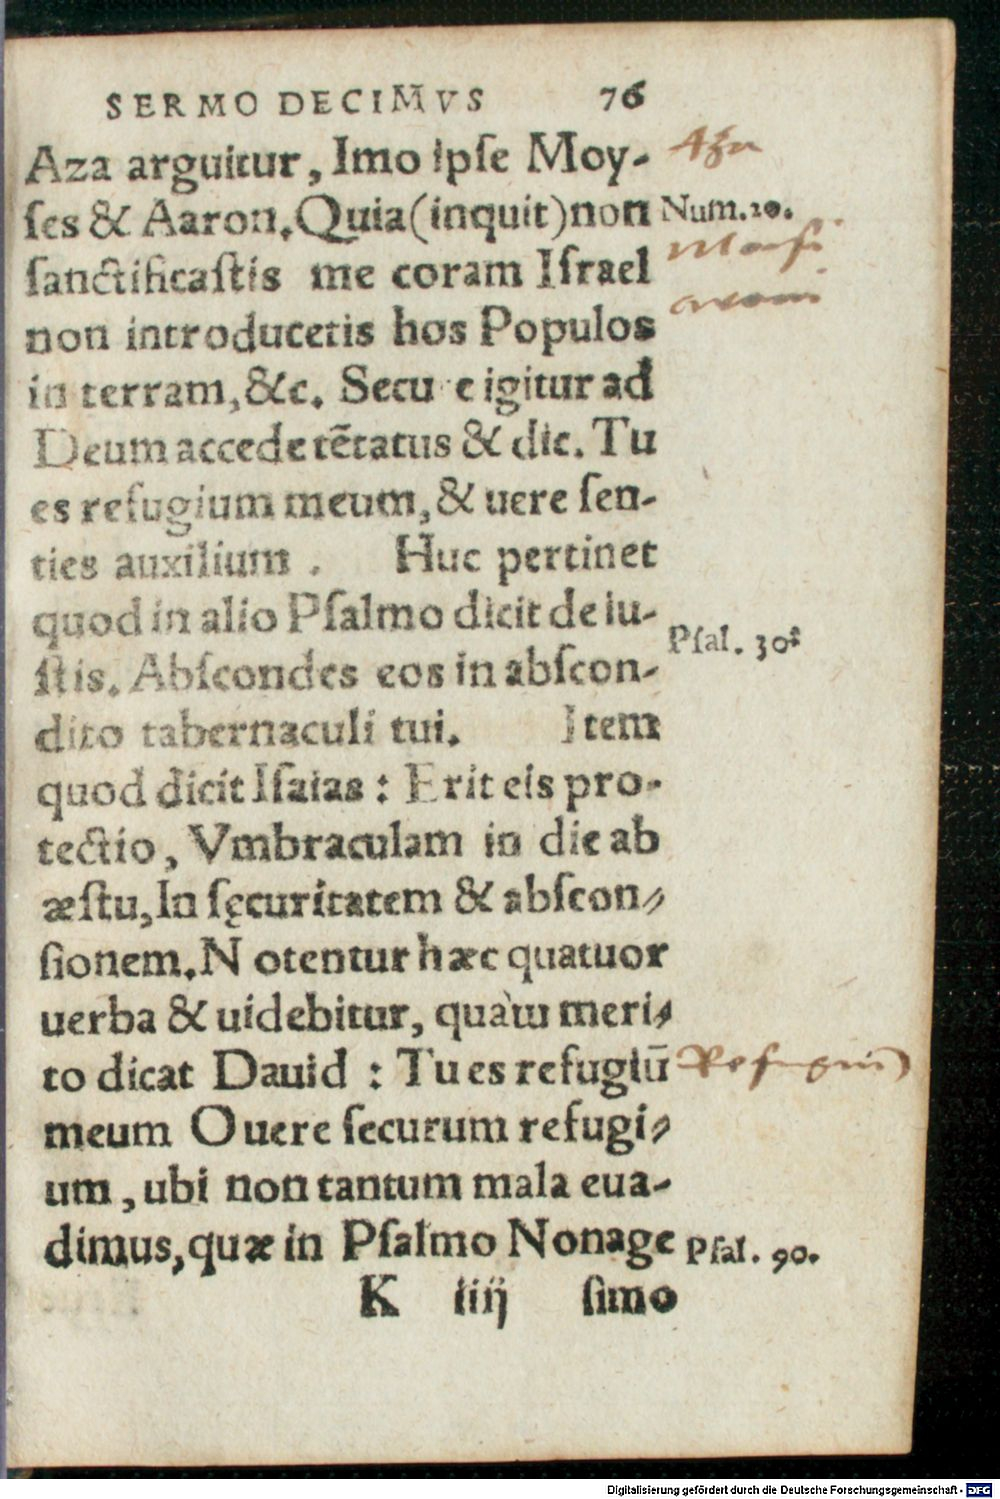 SERMO DECIMVS 76
Aza arguitur, Imo ipſe Moy-
ſes & Aaron. Quia (inquit) non
Num. 20.
ſanctificaſtis me coram Iſrael
non introducetis hos Populos
in terram, &c. Secu e igitur ad
Deum accede tẽtatus & dic. Tu
es refugium meum, & uere ſen-
ties auxilium . Huc pertinet
quod in alio Pſalmo dicit de iu-
Pſal. 30.
ſtis. Abſcondes eos in abſcon-
dito tabernaculi tui. Item
quod dicit Iſaias : Erit eis pro-
tectio, Vmbraculam in die ab
æſtu, In ſęcuritatem & abſcon-
ſionem. N otentur hæc quatuor
uerba & uidebitur, quàm meri-
to dicat Dauid : Tu es refugiū
Refugiū
meum O uere ſecurum refugi-
um, ubi non tantum mala eua-
dimus, quæ in Pſalmo Nonage
Pſal. 90.
K iiij ſimo
Digitalisierung gefördert durch die Deutsche Forschungsgemeinschaft - DFG